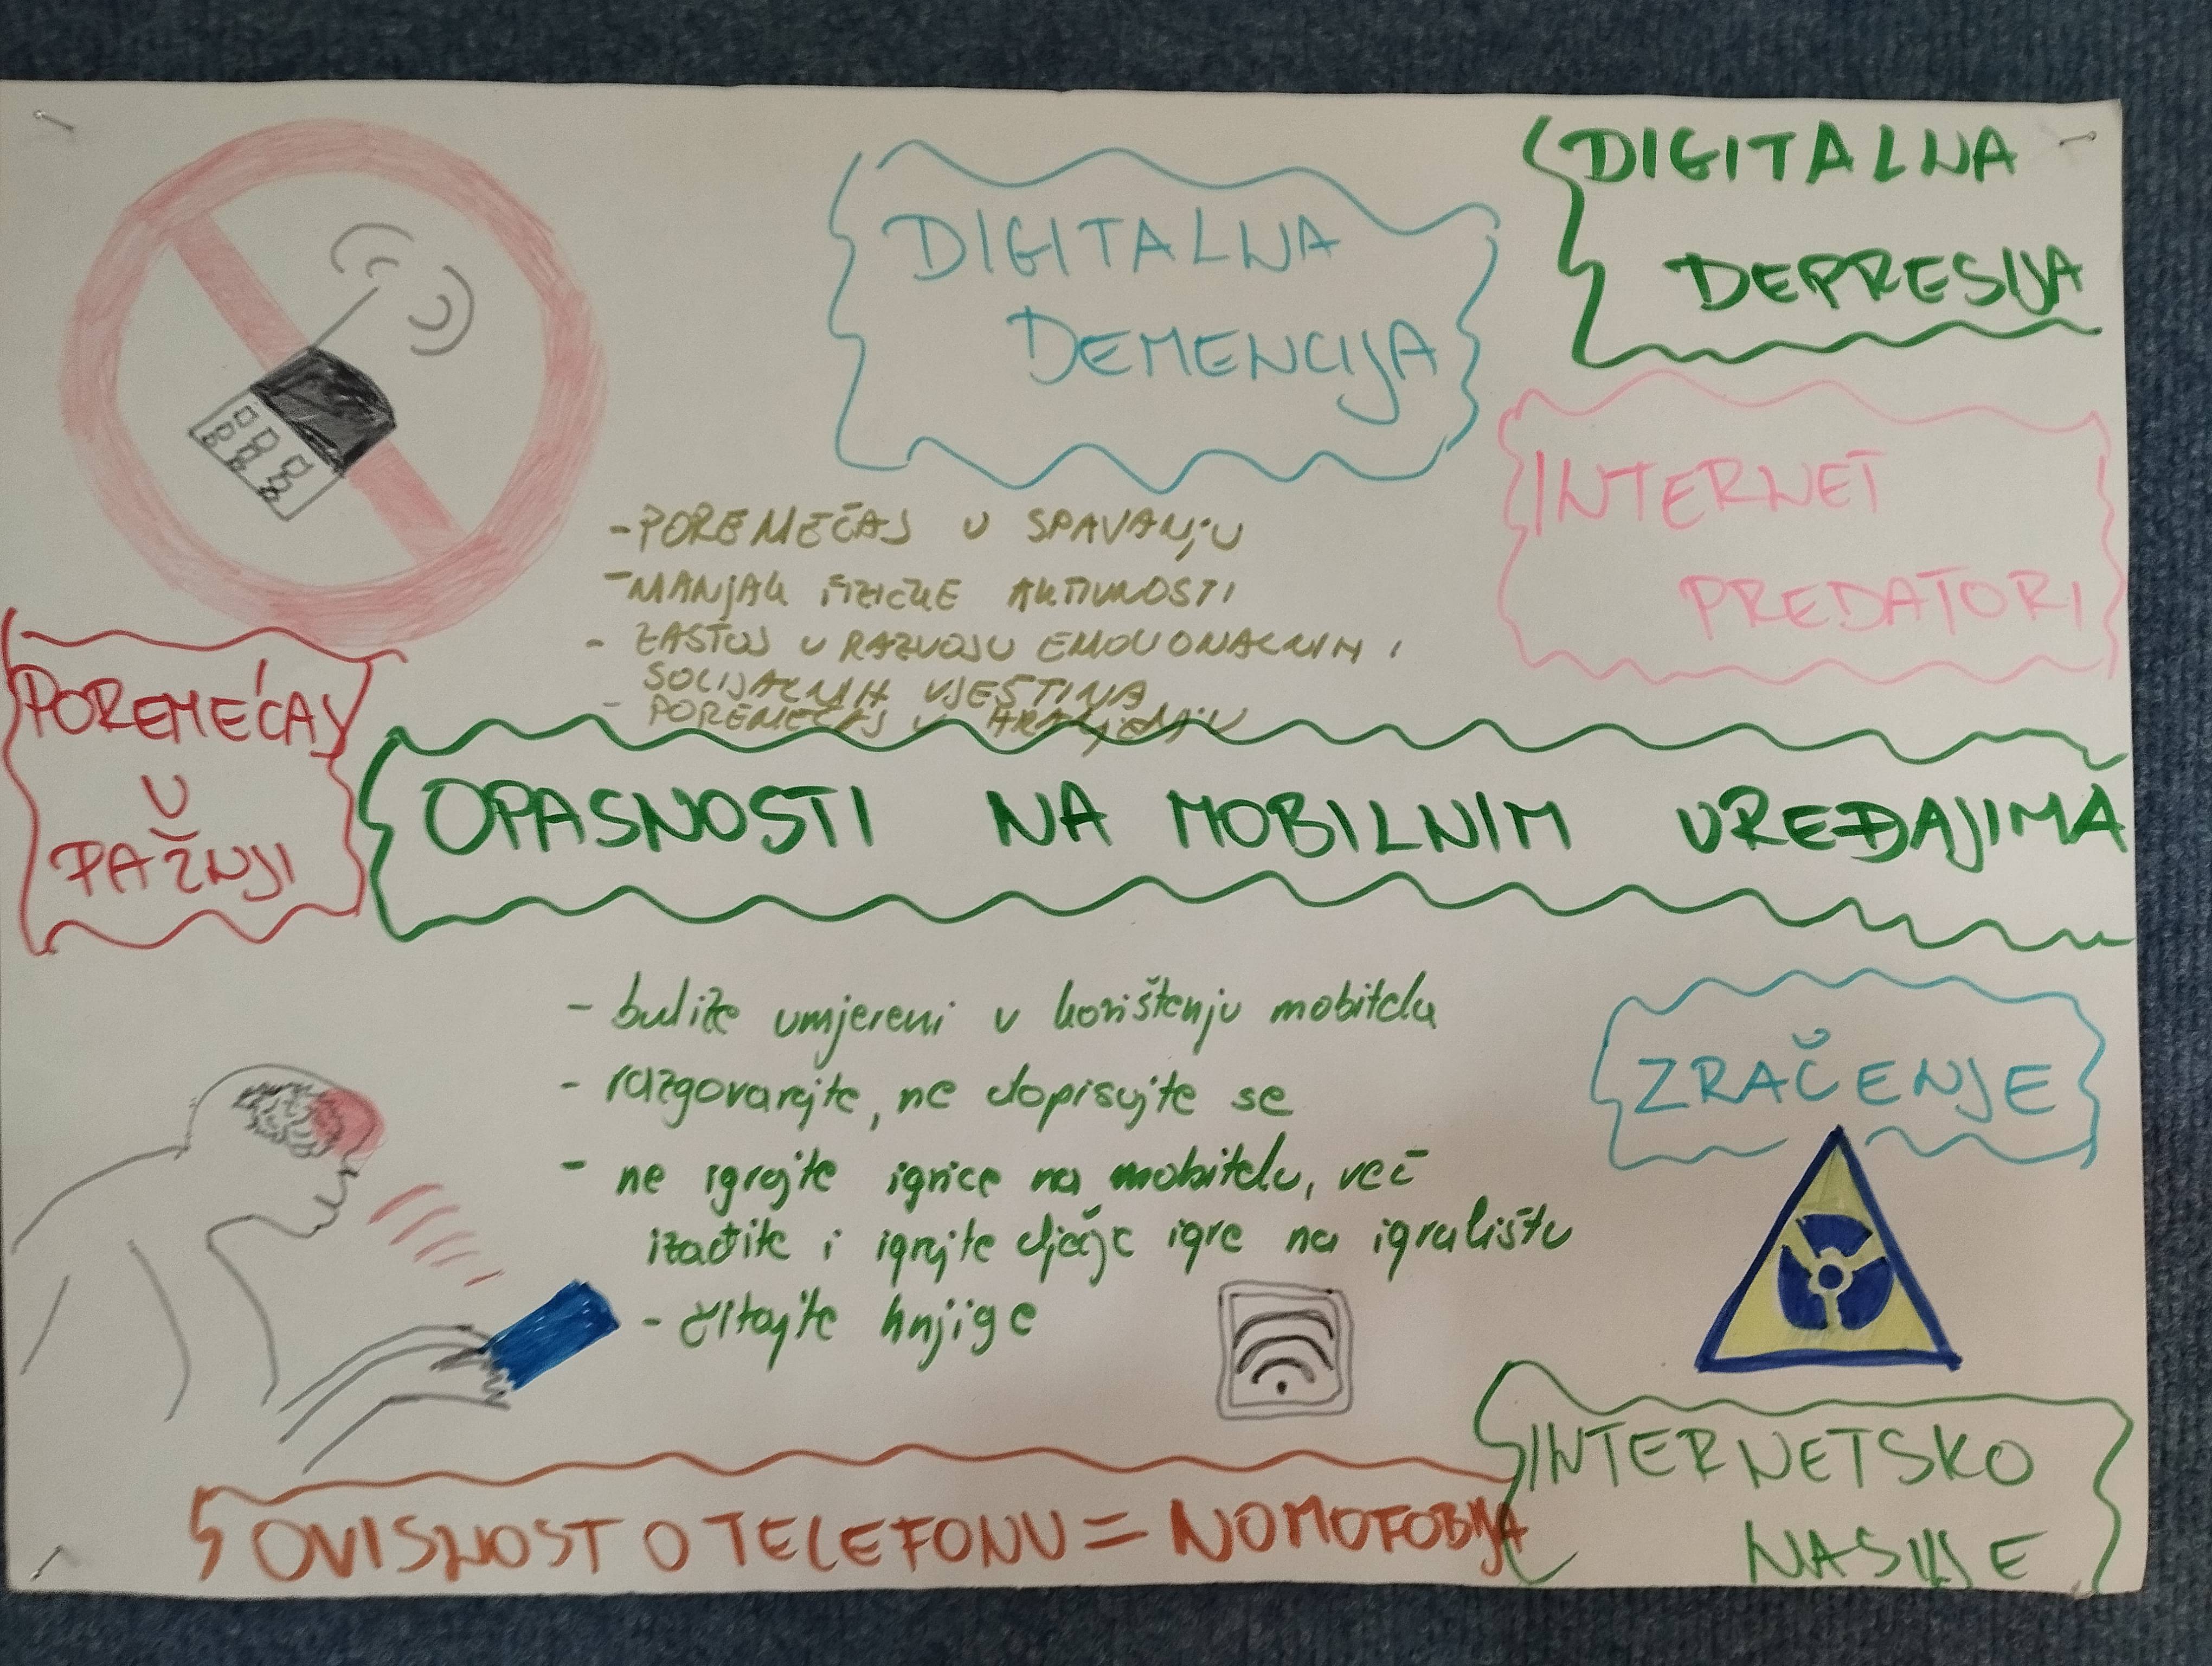 DIGITALNA
DEPRESIJA
DIGITALNA
DEMENCIJA
INTERNET
PREDATORI
- POREMEČAJ U SPAVANjU
- MANjAK FIZIČKE AKTIVNOSTI
- ZASTOJ U RAZVOJU EMOCIONALNIH I
SOCIJALNIH VJEŠTINA
- POREMEČAJ U HRANjENjU
POREMEĆAJ
U
PAŽNJI
OPASNOSTI NA MOBILNIM UREĐAJIMA
- budite umjereni u korištenju mobitela
- razgovarajte, ne dopisujte se
- ne igrajte igrice na mobitelu, več
izađite i igrajte dječje igre na igralištu
- čitajte knjige
ZRAČENJE
INTERNETSKO
NASILJE
OVISNOST O TELEFONU = NOMOFOBIJA